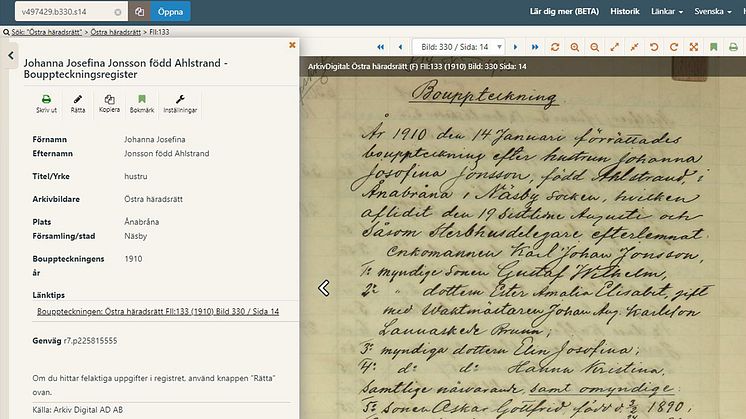 v497429.b330.s14
Öppna
Lär dig mer (BETA)
Historik
Länkar
Svenska
Sök: "Östra häradsrätt" > Östra häradsrätt > FII:133
Johanna Josefina Jonsson född Ahlstrand -
Bouppteckningsregister
Skriv ut
Rätta
Kopiera
Bokmärk
Inställningar
Förnamn Johanna Josefina
Efternamn Jonsson född Ahlstrand
Titel/Yrke hustru
Arkivbildare Östra häradsrätt
Plats Ånabråna
Församling/stad Näsby
Bouppteckningens 1910
år
Länktips
Bouppteckningen: Östra häradsrätt FII:133 (1910) Bild 330 / Sida 14
Genväg r7.p225815555
Om du hittar felaktiga uppgifter i registret, använd knappen "Rätta"
ovan.
Källa: Arkiv Digital AD AB
Bild: 330 / Sida: 14
ArkivDigital: Östra häradsrätt (F) FII:133 (1910) Bild: 330 Sida: 14
Bouppteckning.
År 1910 den 14 Januari förrättades
bouppteckning efter hustrun Johanna
Josefina Jonsson, född Ahlstrand, i
Ånabråna i Näsby socken, hvilken
aflidit den 19 sistlidne Augusti och
såsom sterbhusdelegare efterlemnat
enkomannen Karl Johan Jonsson,
1: myndige sonen Gustaf Wilhelm,
2: " dottern Ester Amalia Elisabet, gift
med Waktmästaren Johan Aug. Karlsson
Lannaskede Brunn;
3: myndiga dottern Elin Josefina;
4: d: d: Hanna Kristina,
samtlige närvarande, samt omyndige:
5: sonen Oskar Gottfrid född d. 1890,